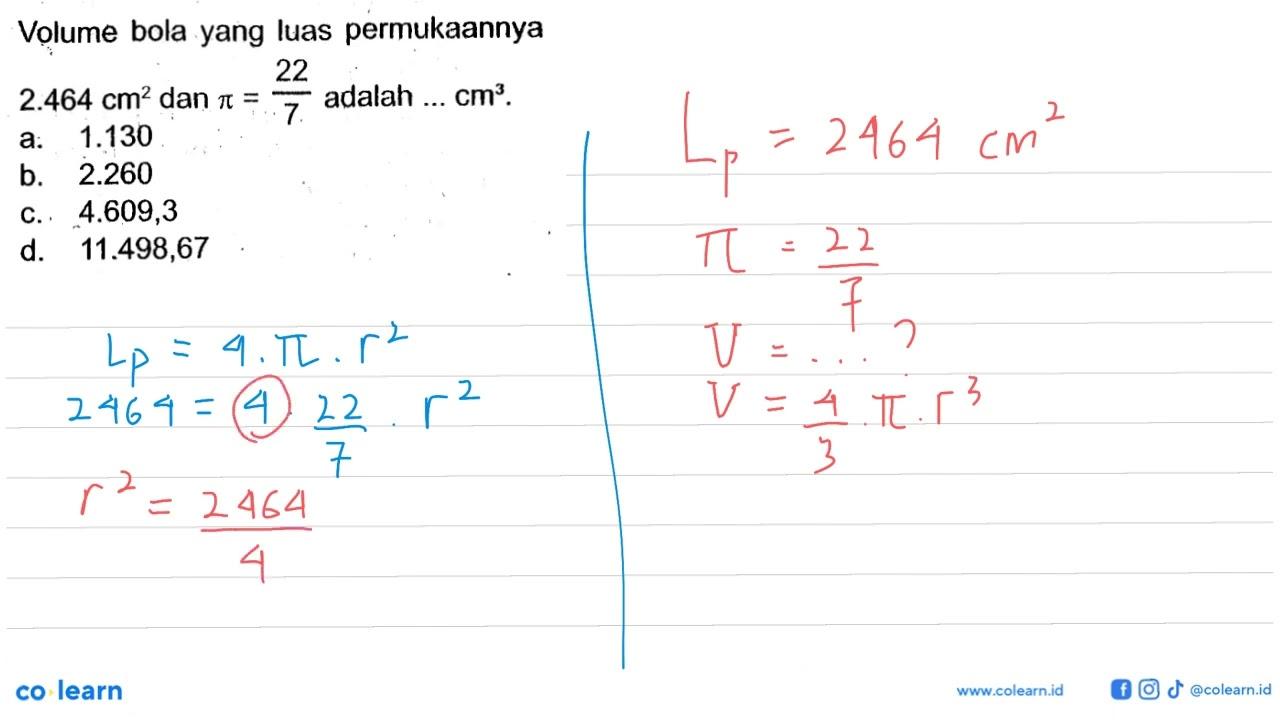 Volume bola yang luas permukaannya
2.464 cm² dan π = 22/7 adalah ... cm³.
a. 1.130
b. 2.260
c. 4.609,3
d. 11.498,67
Lp = 4 . π . r²
2464 = 4 . 22/7 . r²
r² = 2464/4
Lp = 2464 cm²
π = 22/7
V = ... ?
V = 4/3 . π . r³
co learn
www.colearn.id
@colearn.id